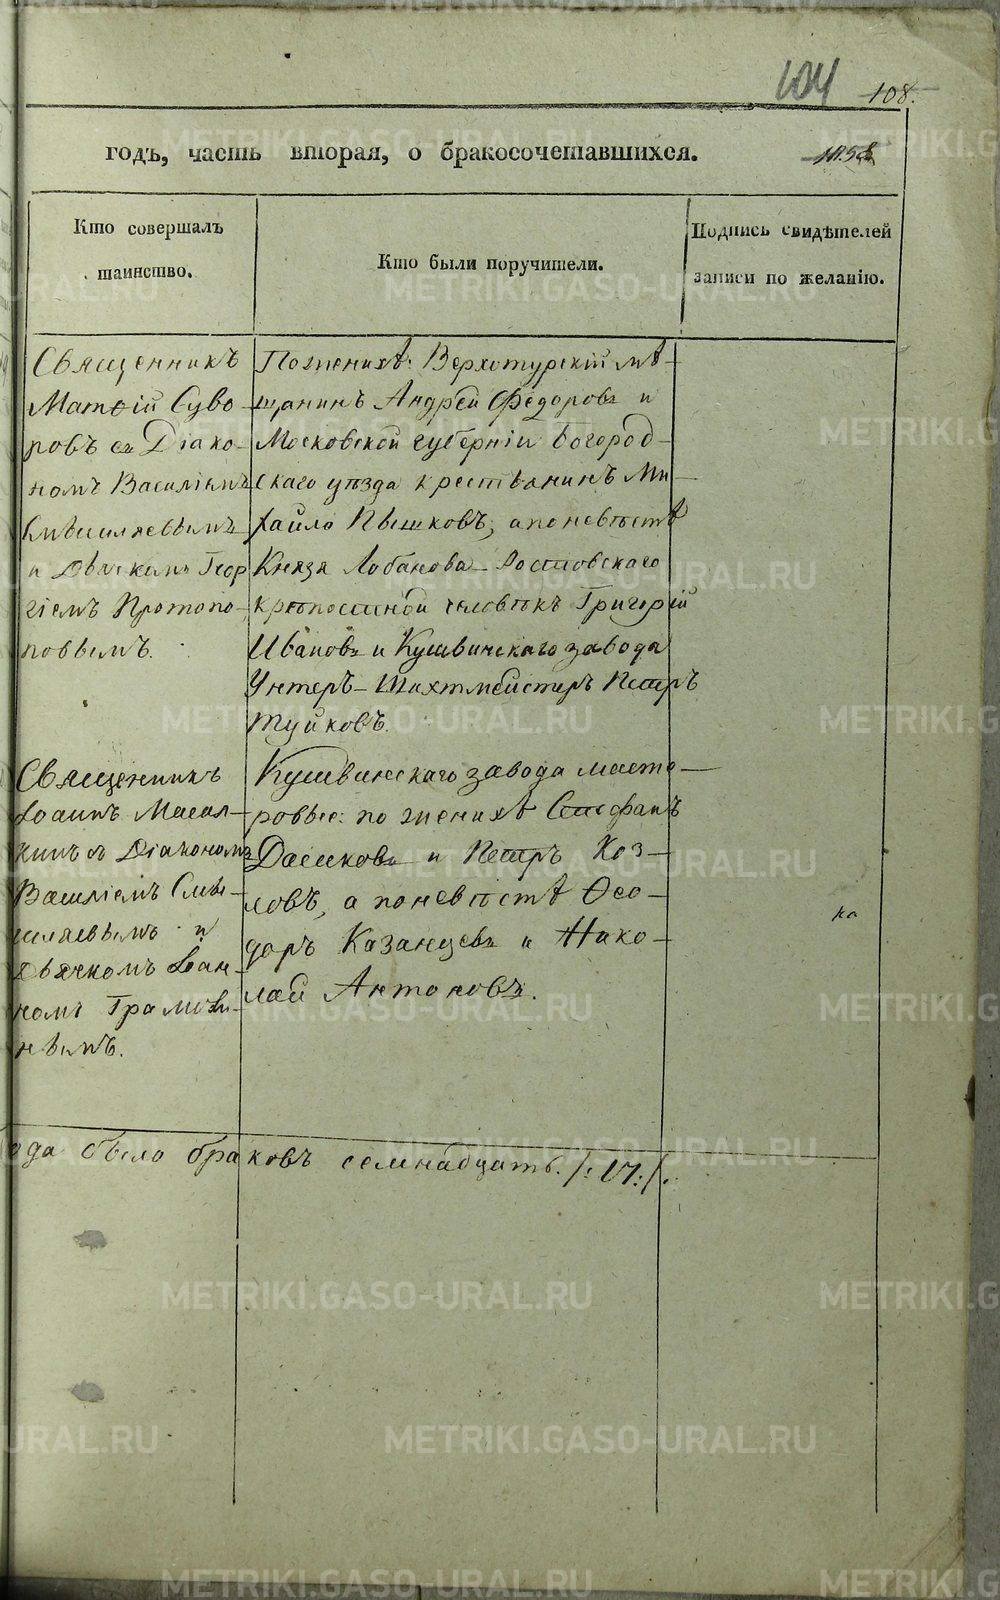 104 108.
годъ, часть вторая, о бракосочетавшихся.
Кто совершалъ
таинство.
Кто были поручители.
Подпись свидѣтелей
записи по желанію.
Священникъ
Матѳій Суво-
ровъ съ Діако-
номъ Василіемъ
Смышляевымъ
и Дьячкомъ Геор
гіемъ Протопо-
повымъ.
По женихѣ: Верхотурскій мѣ-
щанинъ Андрей Федоровъ и
Московской губерніи Богород-
скаго уѣзда крестьянинъ Ми-
хайло Пышковъ; а по невѣстѣ
Князя Лобанова-Ростовскаго
крѣпостной человѣкъ Григорій
Ивановъ и Кушвинскаго завода
Унтеръ-Шихтмейстеръ Петръ
Туйковъ.
Священникъ
Іоаннъ
съ Діакономъ
Василіемъ Смы-
шляевымъ и
Дьячкомъ Іоан-
номъ Грамови-
нымъ.
Кушвинскаго завода масте-
ровые: по женихѣ Стефанъ
и Петръ Коз-
ловъ, а по невѣстѣ Ѳео-
доръ Казанцевъ и Нико-
лай Антоновъ.
ка
ода было браковъ семнадцать. /:17:/.
METRIKI.GASO-URAL.RU